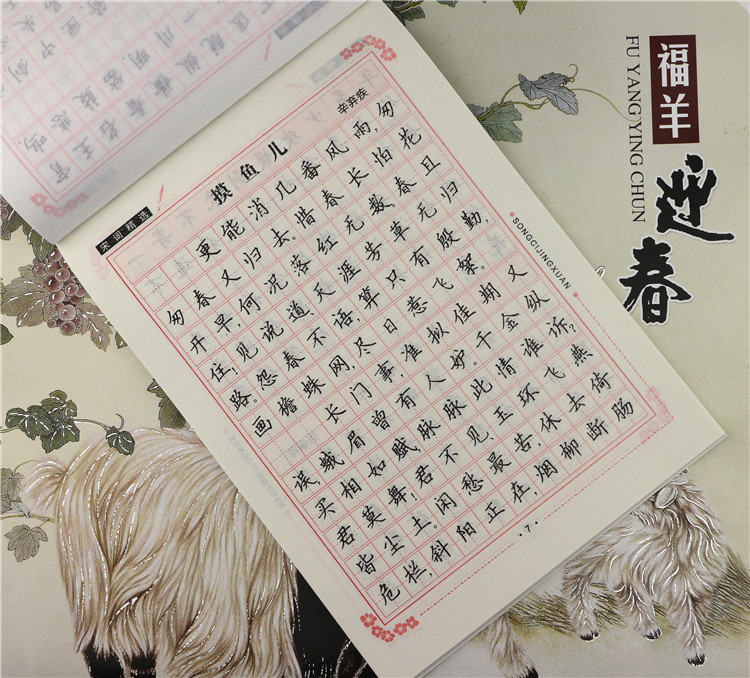 福羊
迎春
FU YANG YING CHUN
宋词精选
摸鱼儿
辛弃疾
更能消几番风雨,匆
匆春又归去。惜春长怕花
开早,何况落红无数。春且
住!见说道、天涯芳草无归
路。怨春不语,算只有殷勤,
画檐蛛网,尽日惹飞絮。
长门事,准拟佳期又
误,蛾眉曾有人妒。千金纵
买相如赋,脉脉此情谁诉?
君莫舞!君不见、玉环飞燕
皆尘土。闲愁最苦,休去倚
危栏,斜阳正在,烟柳断肠
SONGCIJINGXUAN
·7·